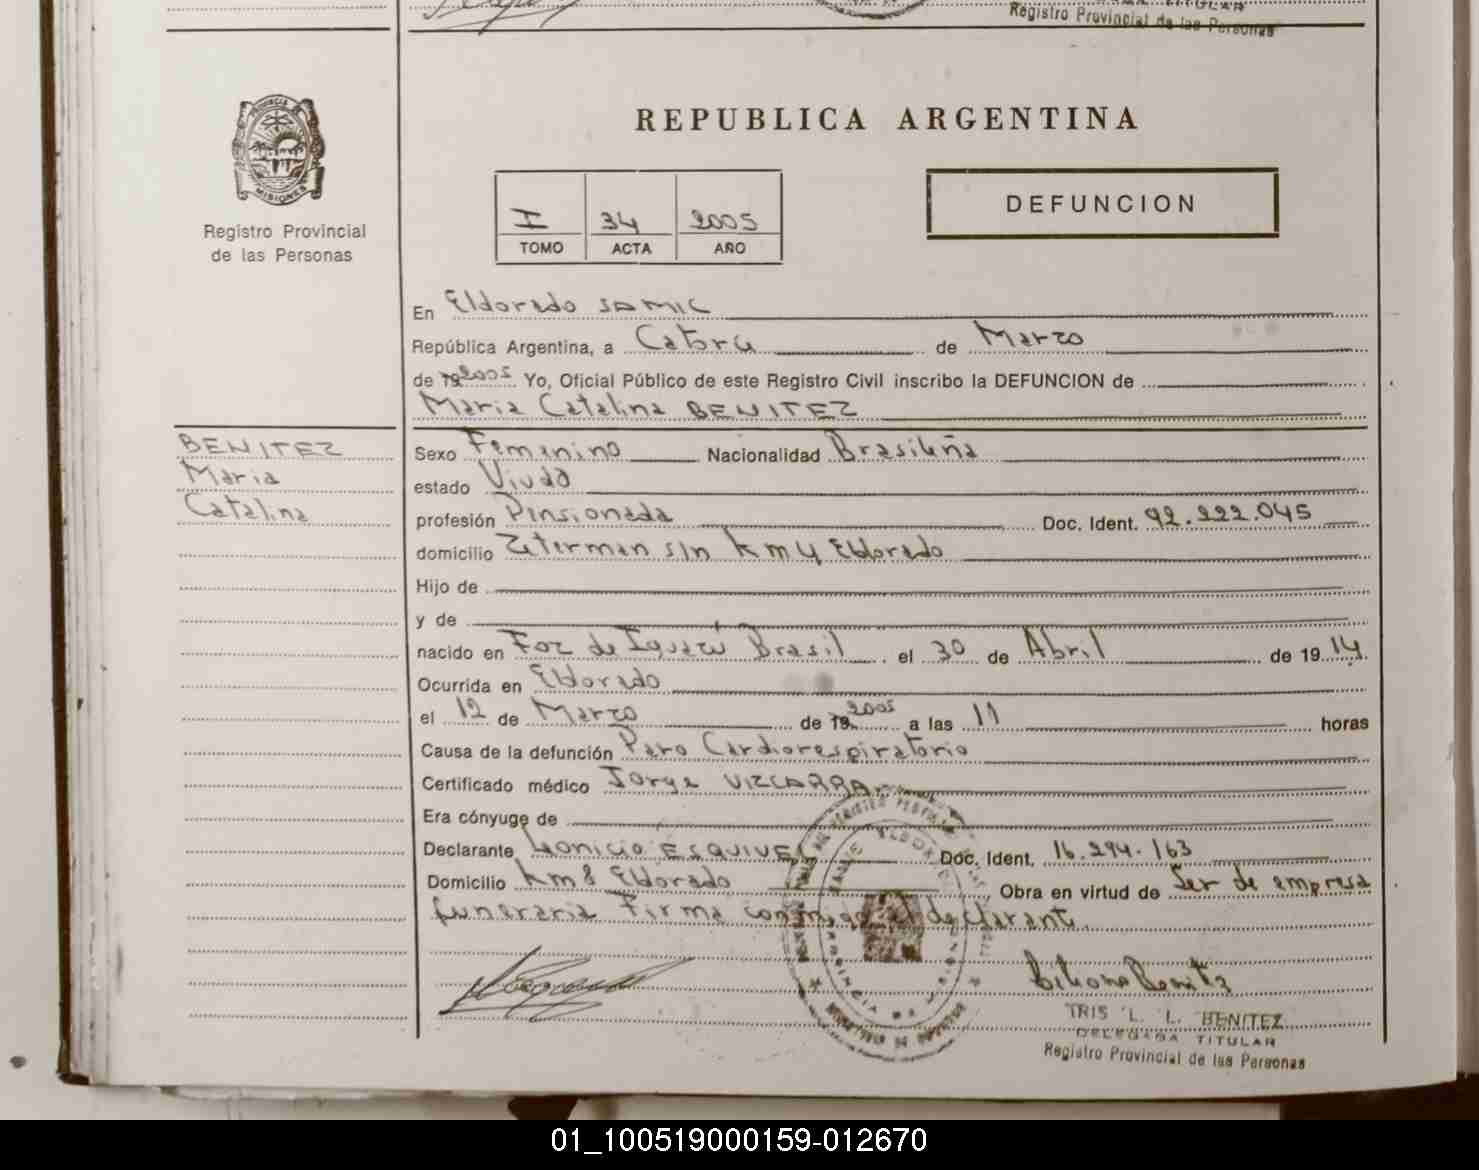 Registro Provincial de las Personas
PROVINCIA DE
MISIONES
Registro Provincial
de las Personas
REPUBLICA ARGENTINA
I 34 2005
TOMO ACTA AÑO
DEFUNCION
En Eldorado SAMIC
República Argentina, a Catorce de Marzo
de 19 2005 Yo, Oficial Público de este Registro Civil inscribo la DEFUNCION de
Maria Catalina BENITEZ
BENITEZ
Maria
Catalina
Sexo Femenino Nacionalidad Brasileña
estado Viuda
profesión Pensionada Doc. Ident. 92.222.045
domicilio s/n Km 4 Eldorado
Hijo de
y de
nacido en Foz de Iguazú Brasil el 30 de Abril de 1914
Ocurrida en Eldorado
el 12 de Marzo de 19 2005 a las 11 horas
Causa de la defunción Paro Cardiorespiratorio
Certificado médico Jorge VIZCARRA
Era cónyuge de
Declarante ESQUIVEL Doc. Ident. 16.294.163
Domicilio Km 8 Eldorado Obra en virtud de Ser de empresa
funeraria Firma conmigo el declarante.
IRIS L. L. BENITEZ
DELEGADA TITULAR
Registro Provincial de las Personas
01_100519000159-012670